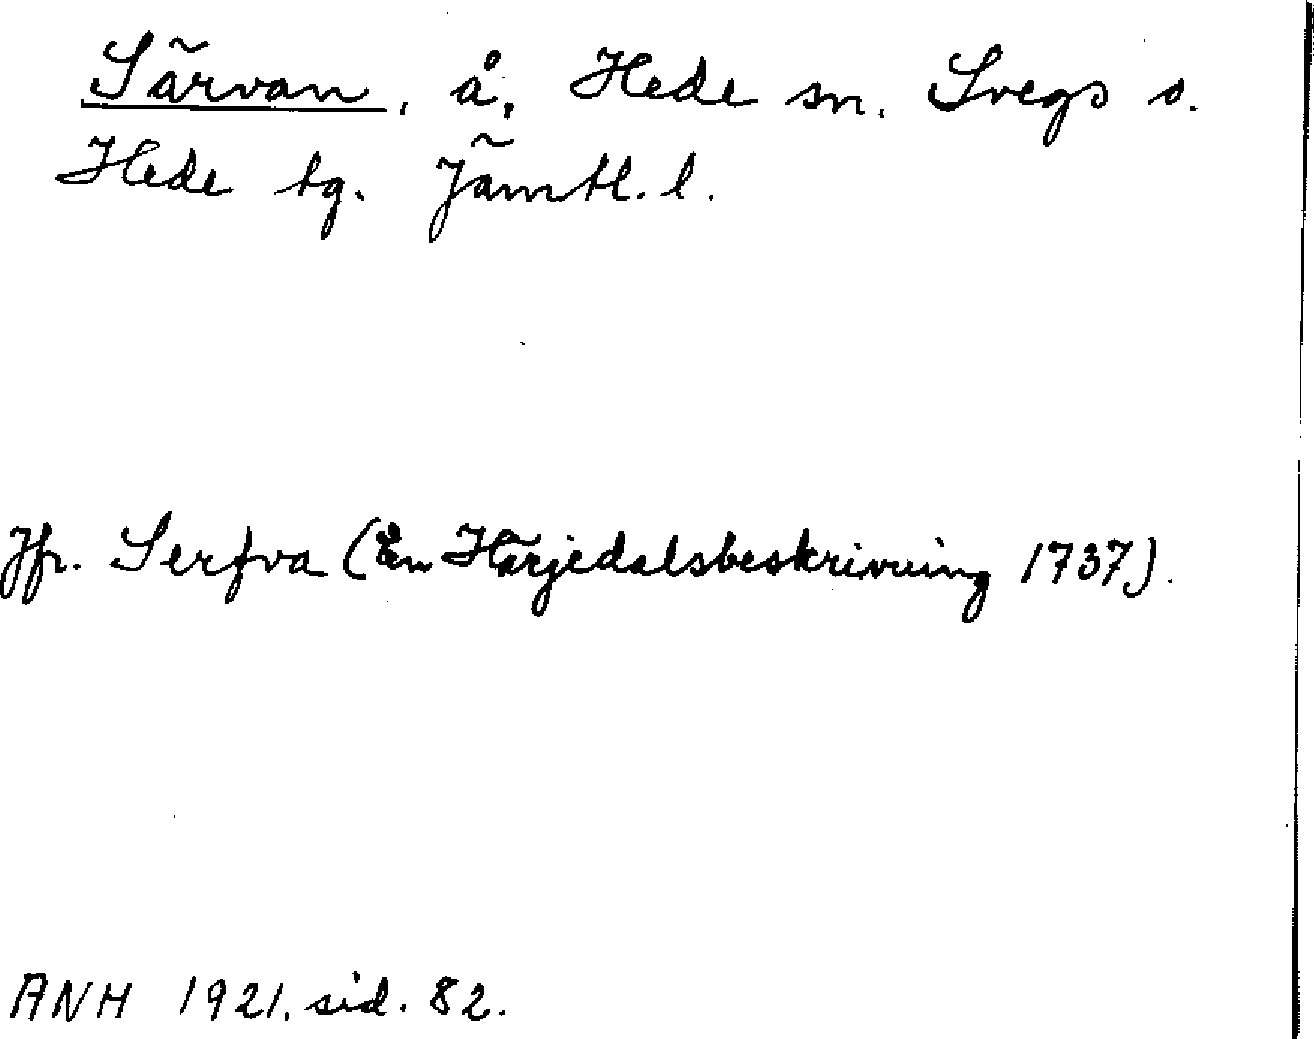 Särvan, å, Hede sn. Svegs s.
Hede tg. Jämtl. l.
Jfr. Serfva (En Härjedalsbeskrivning 1737).
ANH 1921. sid. 82.